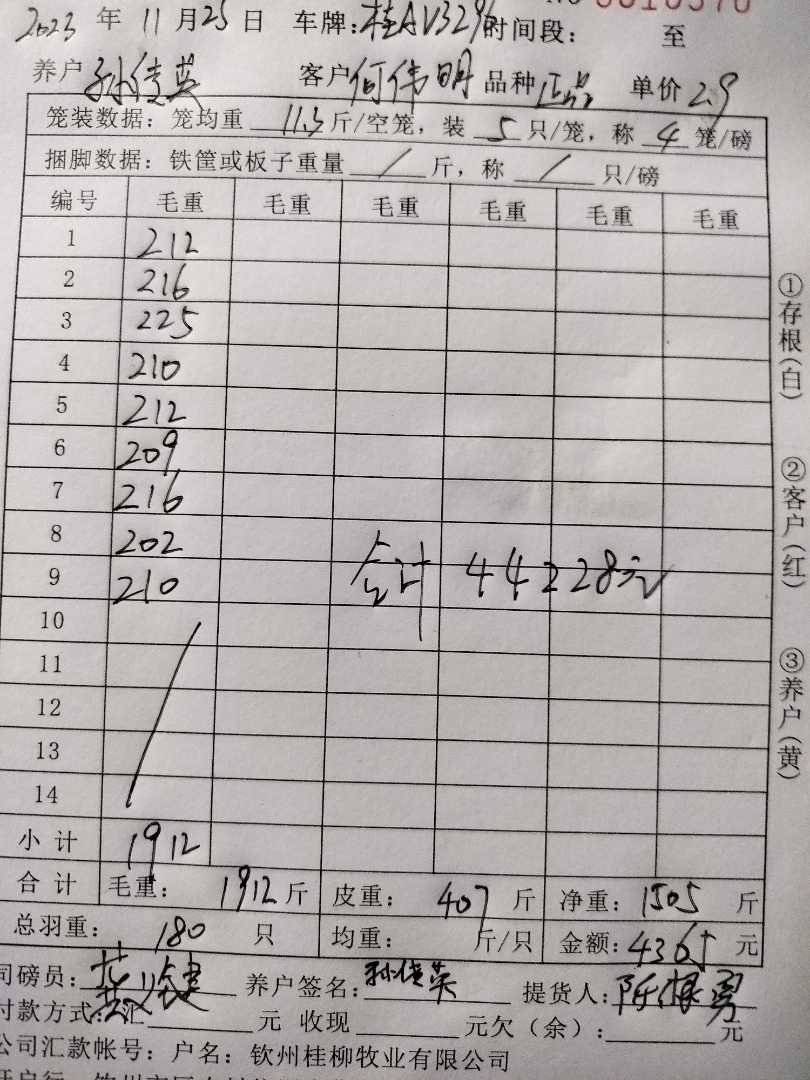 2023 年 11 月 25 日 车牌:桂AV3296 时间段: 至
养户 孙倩英 客户 何伟明 品种 正品 单价 2.9
笼装数据:笼均重 11.3 斤/空笼,装 5 只/笼,称 4 笼/磅
捆脚数据:铁筐或板子重量 / 斤,称 / 只/磅
编号 毛重 毛重 毛重 毛重 毛重 毛重
1 212
2 216
3 225
4 210
5 212
6 209
7 216
8 202
合计 44228元
9 210
10
11
12
13
14
小计 1912
合计 毛重: 1912 斤 皮重: 407 斤 净重: 1505 斤
总羽重: 180 只 均重: 斤/只 金额: 4365 元
司磅员: 养户签名: 孙倩英 提货人:
付款方式:汇 元 收现 元欠(余): 元
公司汇款帐号:户名:钦州桂柳牧业有限公司
①存根(白)
②客户(红)
③养户(黄)